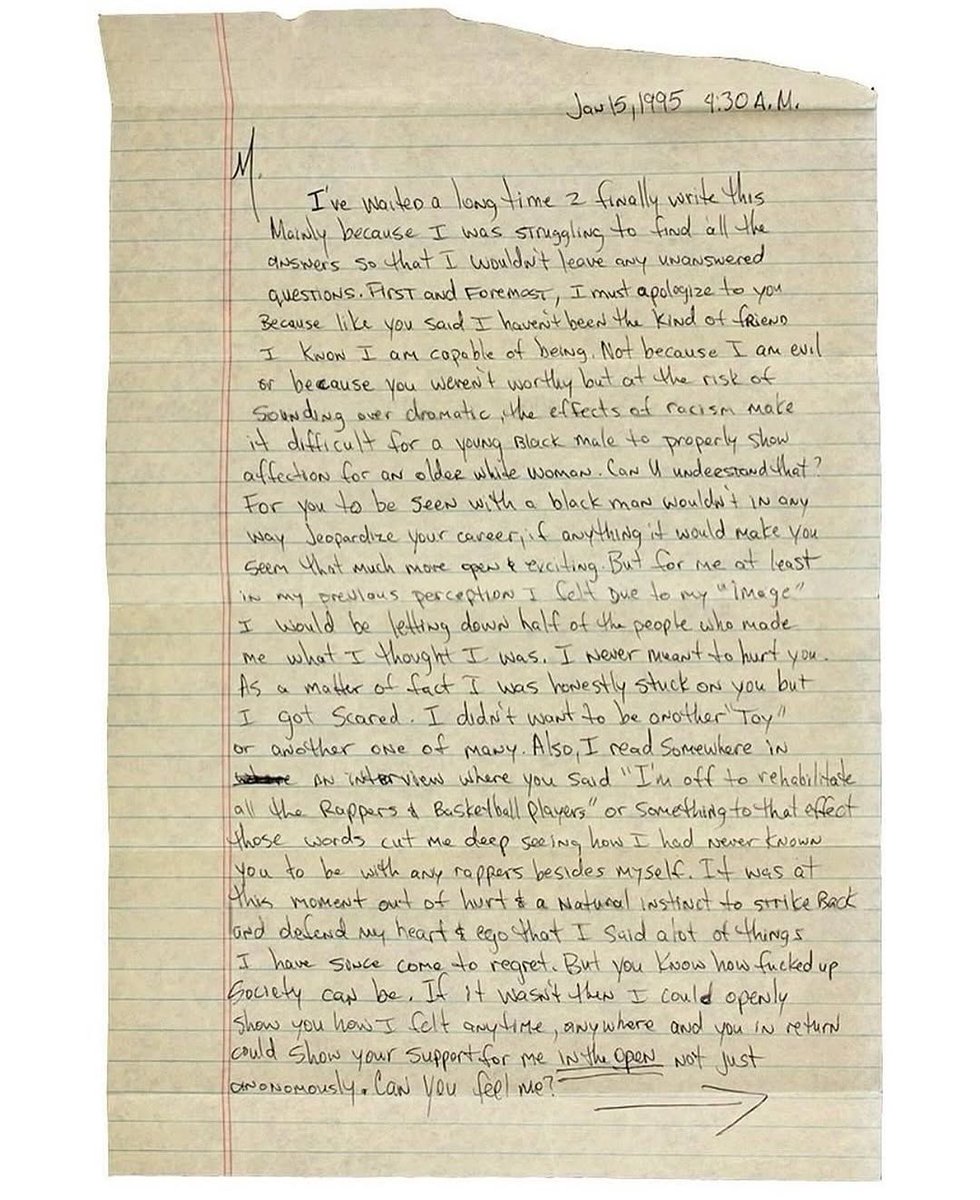 Jan 15, 1995 4:30 A.M.
M.
I've waited a long time 2 finally write this
Mainly because I was struggling to find all the
answers so that I wouldn't leave any unanswered
questions. First and Foremost, I must apologize to you
Because like you said I haven't been the kind of friend
I know I am capable of being. Not because I am evil
or because you weren't worthy but at the risk of
Sounding over dramatic, the effects of racism make
it difficult for a young Black male to properly show
affection for an older white woman. Can U understand that?
For you to be seen with a black man wouldn't in any
way Jeopardize your career, if anything it would make you
seem that much more open & exciting. But for me at least
in my previous perception I felt Due to my "image"
I would be letting down half of the people who made
me what I thought I was. I never meant to hurt you.
As a matter of fact I was honestly stuck on you but
I got scared. I didn't want to be another "Toy"
or another one of many. Also, I read Somewhere in
where an interview where you said "I'm off to rehabilitate
all the Rappers & Basketball players" or something to that effect
those words cut me deep seeing how I had never known
you to be with any rappers besides myself. It was at
this moment out of hurt & a natural instinct to strike Back
and defend my heart & ego that I said alot of things
I have since come to regret. But you know how fucked up
Society can be. If it wasn't then I could openly
show you how I felt anytime, anywhere and you in return
could show your support for me in the open not just
anonomously. Can you feel me?